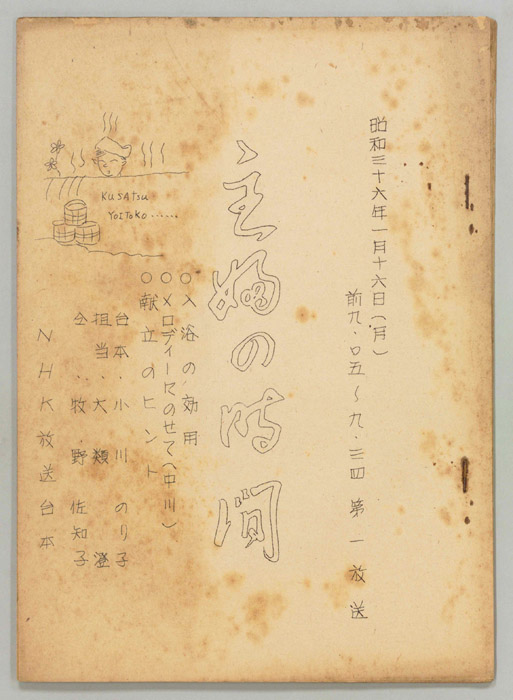 昭和三十六年一月十六日(月)
前九・〇五〜九・三四 第一放送
主婦の時間
○入浴の効用
○メロディーにのせて(中川)
○献立のヒント
台本・小川のり子
担当・大類 澄
仝・牧野佐知子
NHK放送台本
KUSATSU
YOITOKO......